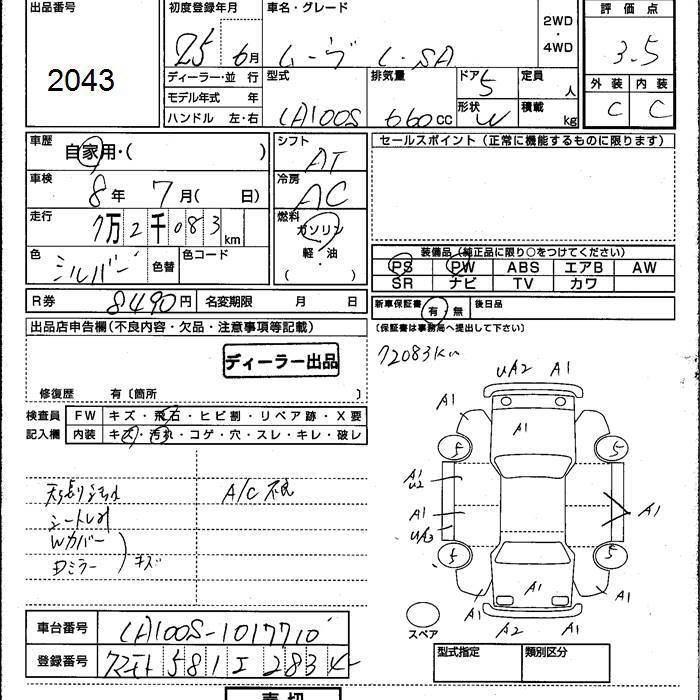 出品番号 2043
初度登録年月 25年 6月
車名・グレード ムーヴ L・SA
2WD・4WD
評価点 3.5
外装 C 内装 C
ディーラー・並行
モデル年式 年
ハンドル 左・右
型式 LA100S
排気量 660cc
ドア 5
形状 W
定員 人
積載 kg
車歴 自家用・( )
車検 8年 7月( 日)
走行 7万2千083km
色 シルバー 色替 色コード
シフト AT
冷房 AC
燃料 ガソリン 軽・油 ( )
セールスポイント(正常に機能するものに限ります)
装備品(純正品に限り○をつけてください)
PS PW ABS エアB AW
SR ナビ TV カワ
R券 8490円 名変期限 月 日
新車保証書 有・無 後日品
(保証書は事務局へ提出して下さい)
出品店申告欄(不良内容・欠品・注意事項等記載)
ディーラー出品
修復歴 有〔箇所 〕
検査員記入欄
FW キズ・飛石・ヒビ割・リペア跡・X要
内装 キズ・汚れ・コゲ・穴・スレ・キレ・破レ
A/C不良
Wカバー
Dミラー キズ
72083km
UA2 A1
A1
A1
5 5
A1
U2
A1
A1
UA3
5 5
A1
A1 A1
A2 A1
スペア
車台番号 LA100S-1017710
登録番号 581 エ 283
型式指定 類別区分
売切